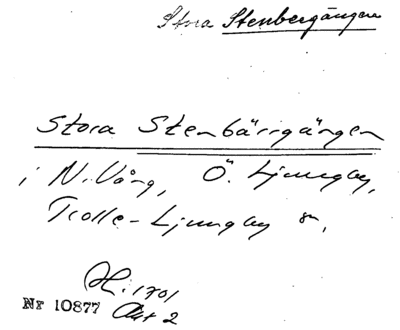 Stora Stenbergängen
Stora Stenbärsgängen
i N. Vång, Ö. Ljungby,
Trolle-Ljungby sn.
H. 1701
Akt 2
Nr 10877